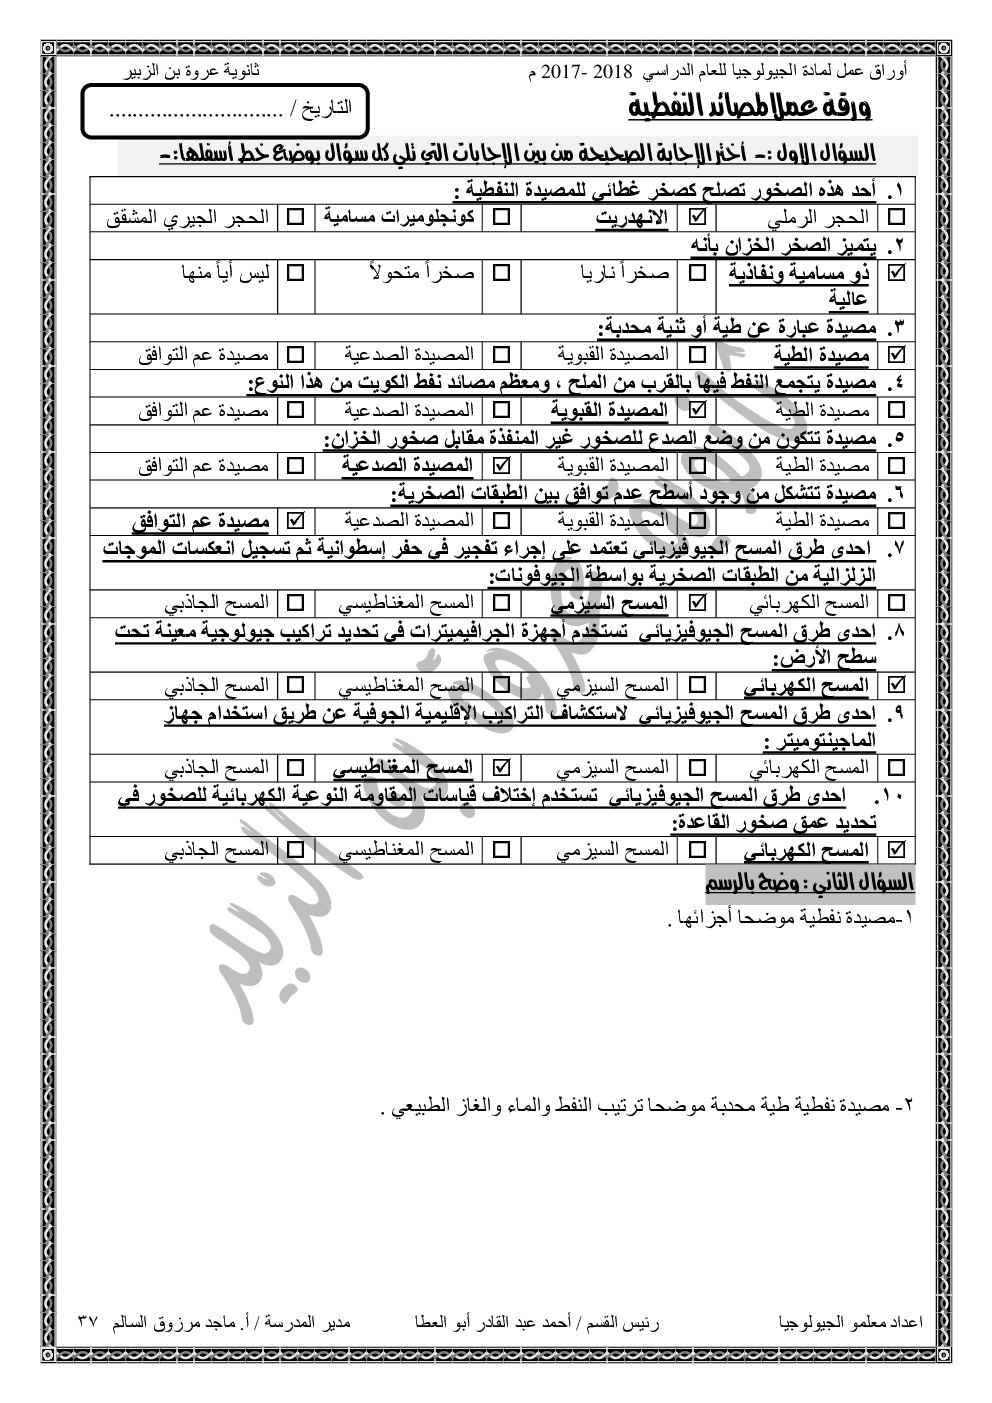 أوراق عمل لمادة الجيولوجيا للعام الدراسي 2018 -2017 م
ثانوية عروة بن الزبير
ورقة عمل المصائد النفطية
التاريخ / ..............................
السؤال الاول :- أختر الإجابة الصحيحة من بين الإجابات التي تلي كل سؤال بوضع خط أسفلها:-
١. أحد هذه الصخور تصلح كصخر غطائي للمصيدة النفطية :
☐ الحجر الرملي ☑ الانهدريت ☐ كونجلوميرات مسامية ☐ الحجر الجيري المشقق
٢. يتميز الصخر الخزان بأنه
☑ ذو مسامية ونفاذية ☐ صخراً ناريا ☐ صخراً متحولاً ☐ ليس أياً منها
عالية
٣. مصيدة عبارة عن طية أو ثنية محدبة:
☑ مصيدة الطية ☐ المصيدة القبوية ☐ المصيدة الصدعية ☐ مصيدة عم التوافق
٤. مصيدة يتجمع النفط فيها بالقرب من الملح ، ومعظم مصائد نفط الكويت من هذا النوع:
☐ مصيدة الطية ☑ المصيدة القبوية ☐ المصيدة الصدعية ☐ مصيدة عم التوافق
٥. مصيدة تتكون من وضع الصدع للصخور غير المنفذة مقابل صخور الخزان:
☐ مصيدة الطية ☐ المصيدة القبوية ☑ المصيدة الصدعية ☐ مصيدة عم التوافق
٦. مصيدة تتشكل من وجود أسطح عدم توافق بين الطبقات الصخرية:
☐ مصيدة الطية ☐ المصيدة القبوية ☐ المصيدة الصدعية ☑ مصيدة عم التوافق
٧. احدى طرق المسح الجيوفيزيائي تعتمد على إجراء تفجير في حفر إسطوانية ثم تسجيل انعكسات الموجات
الزلزالية من الطبقات الصخرية بواسطة الجيوفونات:
☐ المسح الكهربائي ☑ المسح السيزمي ☐ المسح المغناطيسي ☐ المسح الجاذبي
٨. احدى طرق المسح الجيوفيزيائي تستخدم أجهزة الجرافيميترات في تحديد تراكيب جيولوجية معينة تحت
سطح الأرض:
☑ المسح الكهربائي ☐ المسح السيزمي ☐ المسح المغناطيسي ☐ المسح الجاذبي
٩. احدى طرق المسح الجيوفيزيائي لاستكشاف التراكيب الإقليمية الجوفية عن طريق استخدام جهاز
الماجينتوميتر :
☐ المسح الكهربائي ☐ المسح السيزمي ☑ المسح المغناطيسي ☐ المسح الجاذبي
١٠. احدى طرق المسح الجيوفيزيائي تستخدم إختلاف قياسات المقاومة النوعية الكهربائية للصخور في
تحديد عمق صخور القاعدة:
☑ المسح الكهربائي ☐ المسح السيزمي ☐ المسح المغناطيسي ☐ المسح الجاذبي
السؤال الثاني : وضح بالرسم
١-مصيدة نفطية موضحا أجزائها .
٢- مصيدة نفطية طية محدبة موضحا ترتيب النفط والماء والغاز الطبيعي .
ثانوية عروة بن الزبير
اعداد معلمو الجيولوجيا
رئيس القسم / أحمد عبد القادر أبو العطا
مدير المدرسة / أ. ماجد مرزوق السالم ٣٧